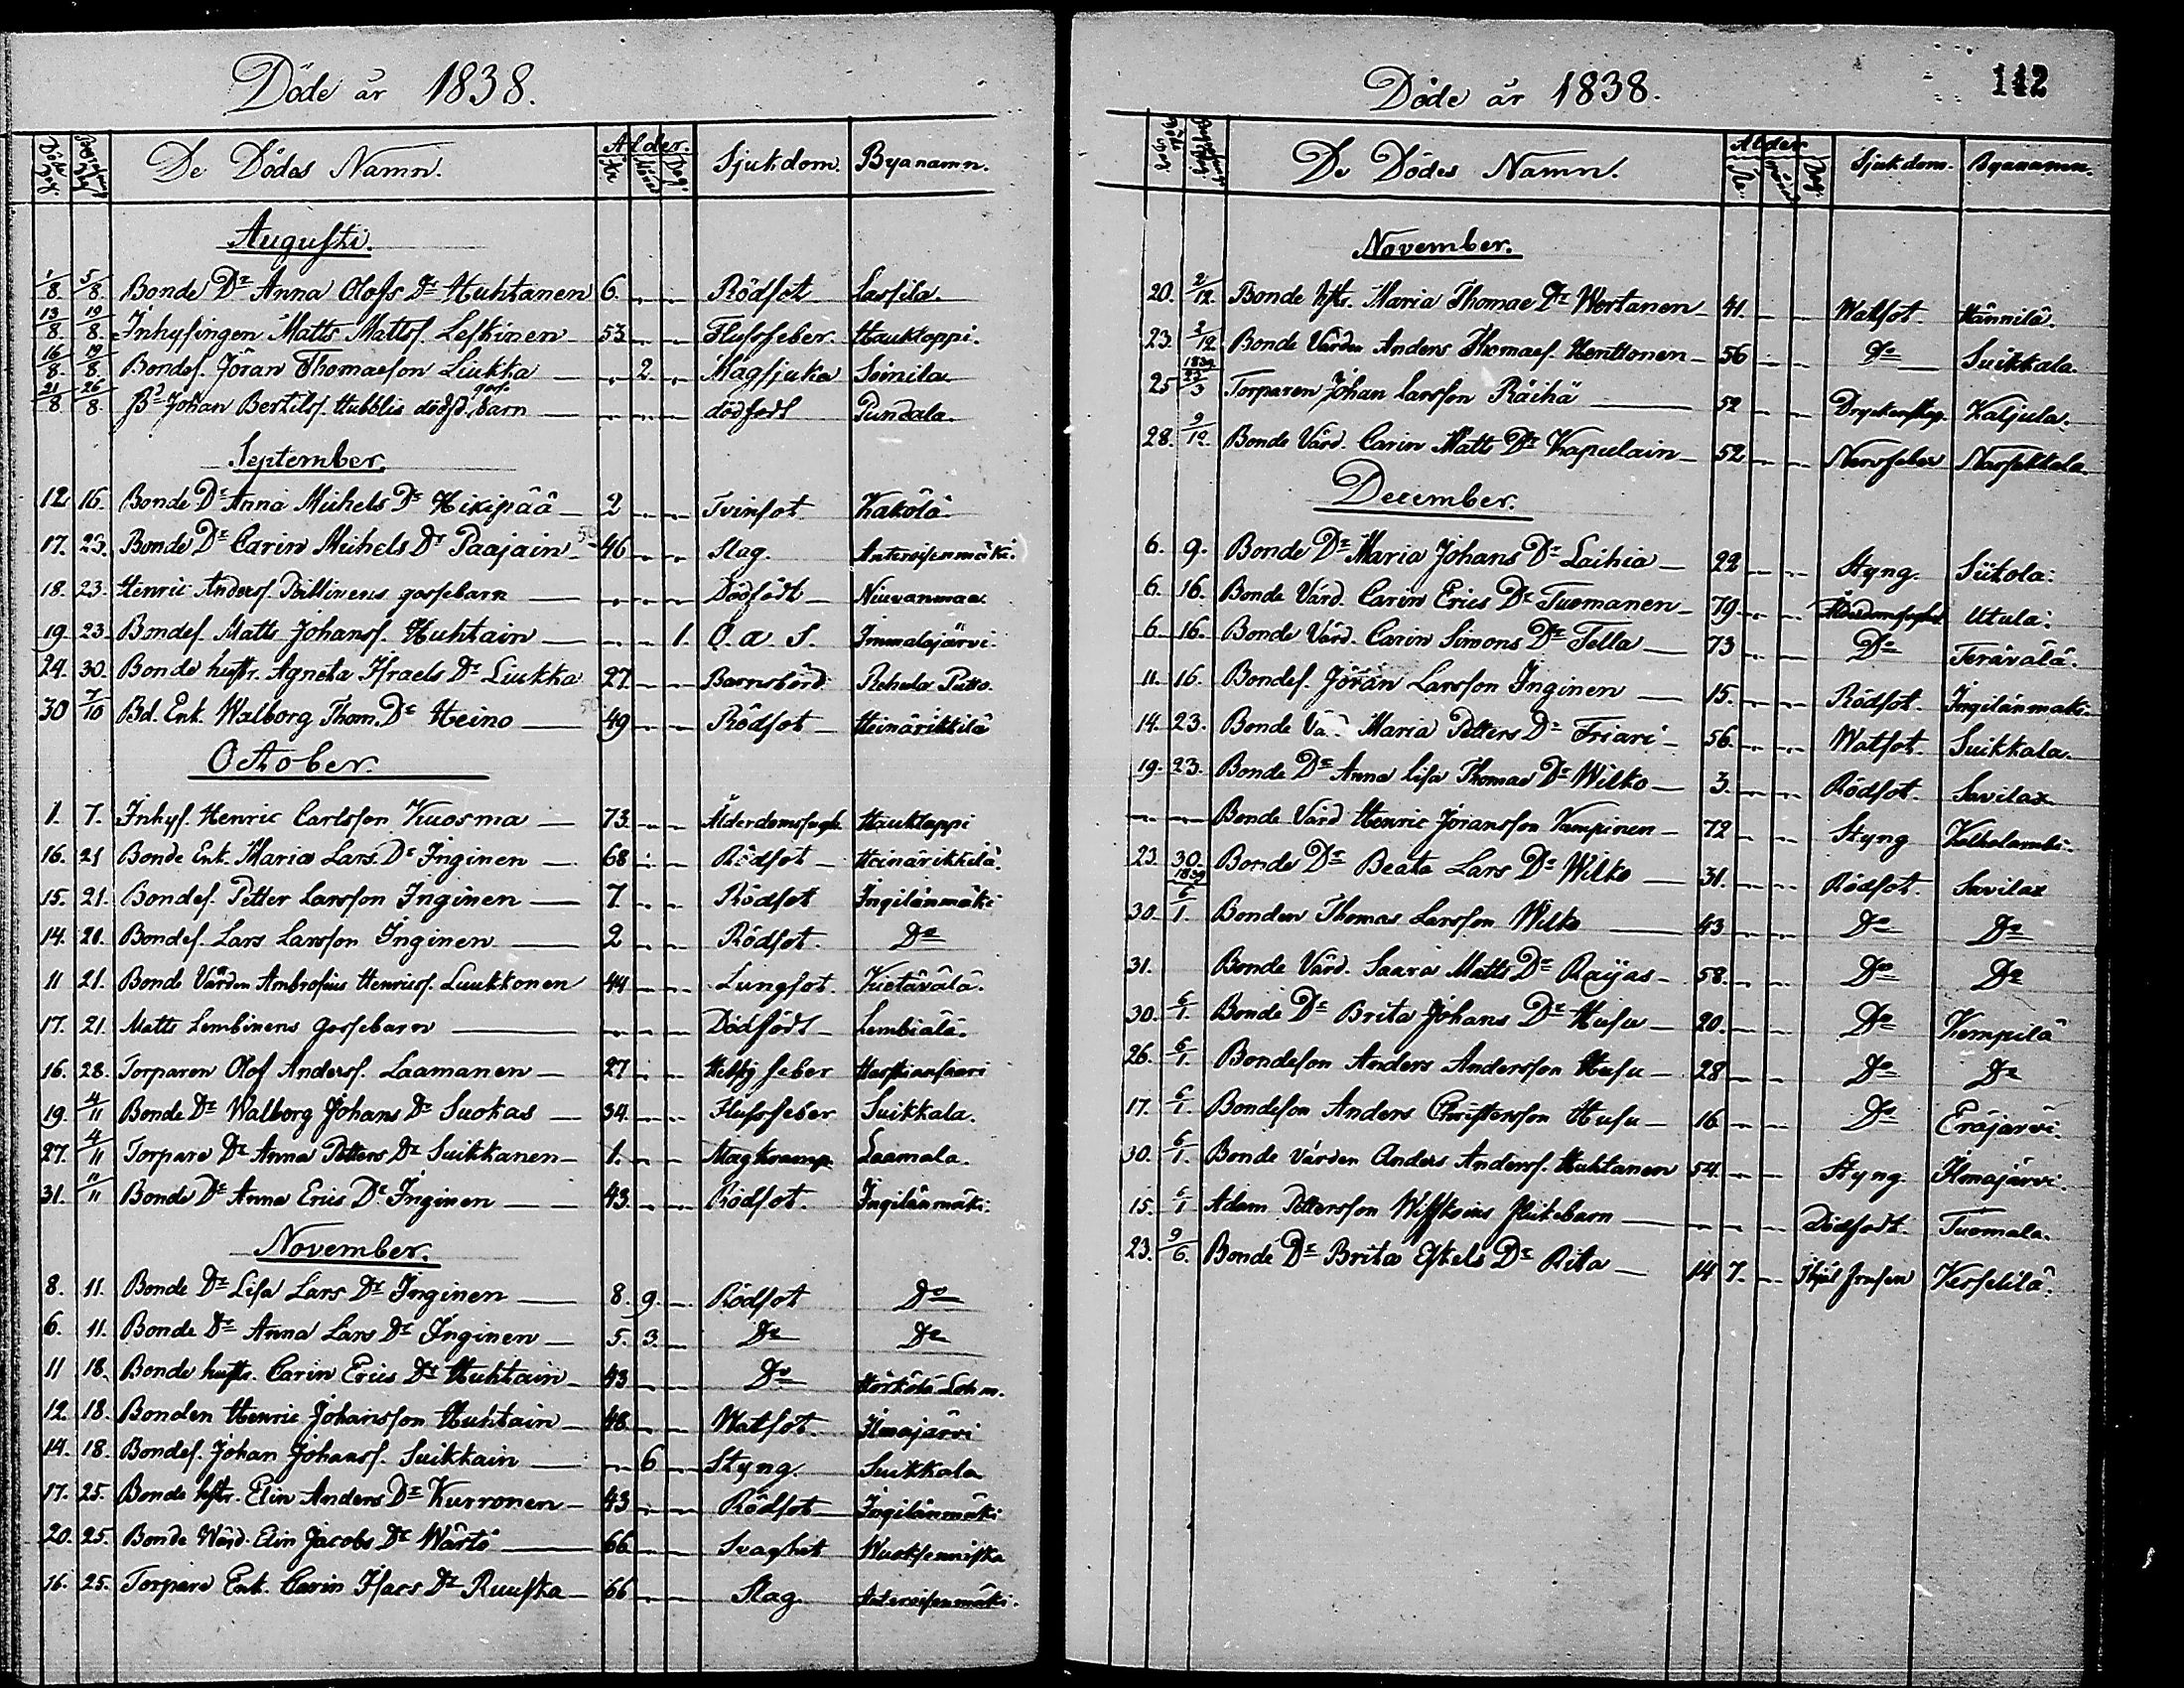 Döde år 1838.
Döde Dag. Begrafnings Dag. De Dödas Namn. Ålder. År Månad Dag. Sjukdom. Byanamn.
Augusti.
1/8. 5/8. Bonde Dr Anna Olofs Dr Huhtanen 6. Rödsot Lasfila.
13/8. 19/8. Inhysingen Matts Mattss. Leskinen 53. Flussfeber. Haukloppi.
16/8. 19/8. Bondes. Jöran Thomasson Liukka 2. Magsjuka Soinila.
21/8 26/8. Bd Johan Bertilss. Hubblis dödf. gosse barn dödfödt Pundala.
September.
12 16. Bonde Dr Anna Michels Dr Hikipää 2 Tvinsot Kakola.
17. 23. Bonde Dr Carin Michels Dr Paajain 46 Slag. Anteroisenmäki.
18. 23. Henric Anderss. Pällinens gossebarn Dödfödt Niuvanmaa.
19. 23 Bondes. Matts Johanss. Huhtain 1. O. a. S. Immalajärvi.
24. 30. Bonde hustr. Agneta Israels Dr Liukka 27 Barnsbörd Rehula Putto.
30 7/10 Bd. Enk. Walborg Thom. Dr Heino 49 Rödsot Heinärikkilä
October.
1. 7. Inhys. Henric Carlsson Kuosma 73. Ålderdomssvagh. Haukloppi
16. 21 Bonde Enk. Maria Lars. Dr Inginen 68 Rödsot Heinärikkilä.
15. 21. Bondes. Petter Larsson Inginen 7 Rödsot Ingilänmäki
14. 21. Bondes. Lars Larsson Inginen 2 Rödsot. Do
11 21. Bonde Värden Ambrosius Henricss. Luukkonen 44 Lungsot. Kietävälä.
17. 21. Matts Lembinens gossebarn Dödfödt Lembiälä.
16. 28. Torparen Olof Anderss. Laamanen 27 Hetsig feber Härskiansaari
19. 4/11 Bonde Dr Walborg Johans Dr Suokas 34. Flussfeber Suikkala.
27. 4/11 Torpare Dr Anna Petters Dr Suikkanen 1. Magkramp Laamala.
31. 11/11 Bonde Dr Anna Erics Dr Inginen 43. Rödsot. Ingilänmäki.
November.
8. 11. Bonde Dr Lisa Lars Dr Inginen 8. 9. Rödsot Do
6. 11. Bonde Dr Anna Lars Dr Inginen 5. 3. Do Do
11 18. Bonde hustr. Carin Erics Dr Huhtain 43 Do Härkölä Lohm.
12. 18. Bonden Henric Johansson Huhtain 48 Watsot. Ilmajärvi
14. 18. Bondes. Johan Johanss. Suikkain 6 Styng. Suikkala
17. 25. Bonde hstr. Elin Anders Dr Kurronen 43 Rödsot Ingilänmäki
20. 25. Bonde Wärd. Elin Jacobs Dr Wärtö 66 Svaghet Wuoksenniska
16. 25. Torpare Enk. Carin Isacs Dr Ruuska 66 Slag. Anteroisenmäki.
Döde år 1838.
142
Döde Dag Begrafnings Dag De Dödes Namn. Ålder År. Månad Dag Sjukdom. Byanamn.
November.
20. 2/12. Bonde hstr. Maria Thomae Dr Wertanen 41. Watsot. Hännilä.
23. 2/12. Bonde Värden Anders Thomass. Henttonen 56 Do Suikkala.
25 1839 22/3 Torparen Johan Larsson Räihä 52 Dryckenskap. Kaljula.
28. 9/12. Bonde Värd. Carin Matts Dr Kapulain 52 Nervfeber Narsakkala
December.
6. 9. Bonde Dr Maria Johans Dr Laihia 22 Styng. Siitola.
6. 16. Bonde Värd. Carin Erics Dr Tuomanen 79. Ålderdomssvaghet Utula.
6. 16. Bonde Värd. Carin Simons Dr Tella 73 Do Terävälä.
11. 16. Bondes. Jöran Larsson Inginen 15. Rödsot. Ingilänmäki.
14. 23. Bonde Maria Petters Dr Friari 56. Watsot. Suikkala.
19. 23. Bonde Dr Anna Lisa Thomae Dr Wilko 3. Rödsot. Savilax
Bonde Värd Henric Göransson Kampinen 72 Styng Kolholambi.
23 30. Bonde Dr Beata Lars Dr Wilko 31. Rödsot. Savilax
30. 1839 6/1. Bonden Thomas Larsson Wilko 43 Do Do
31. Bonde Värd. Saara Matts Dr Raijas 58. Do Do
30. 6/1. Bonde Dr Brita Johans Dr Husu 20. Do Kempilä
26. 6/1. Bondeson Anders Andersson Husu 28 Do Do
17. 6/1. Bondeson Anders Christersson Husu 16 Do Eräjärvi.
30. 6/1. Bonde Värden Anders Anderss. Huhtanen 54. Styng. Ilmajärvi.
15. 6/1 Adam Pettersson flickebarn Dödfödt. Tuomala.
23. 9/6. Bonde Dr Brita Eskels Dr Rita 14 7. Ihjäl frusen Kesselilä.